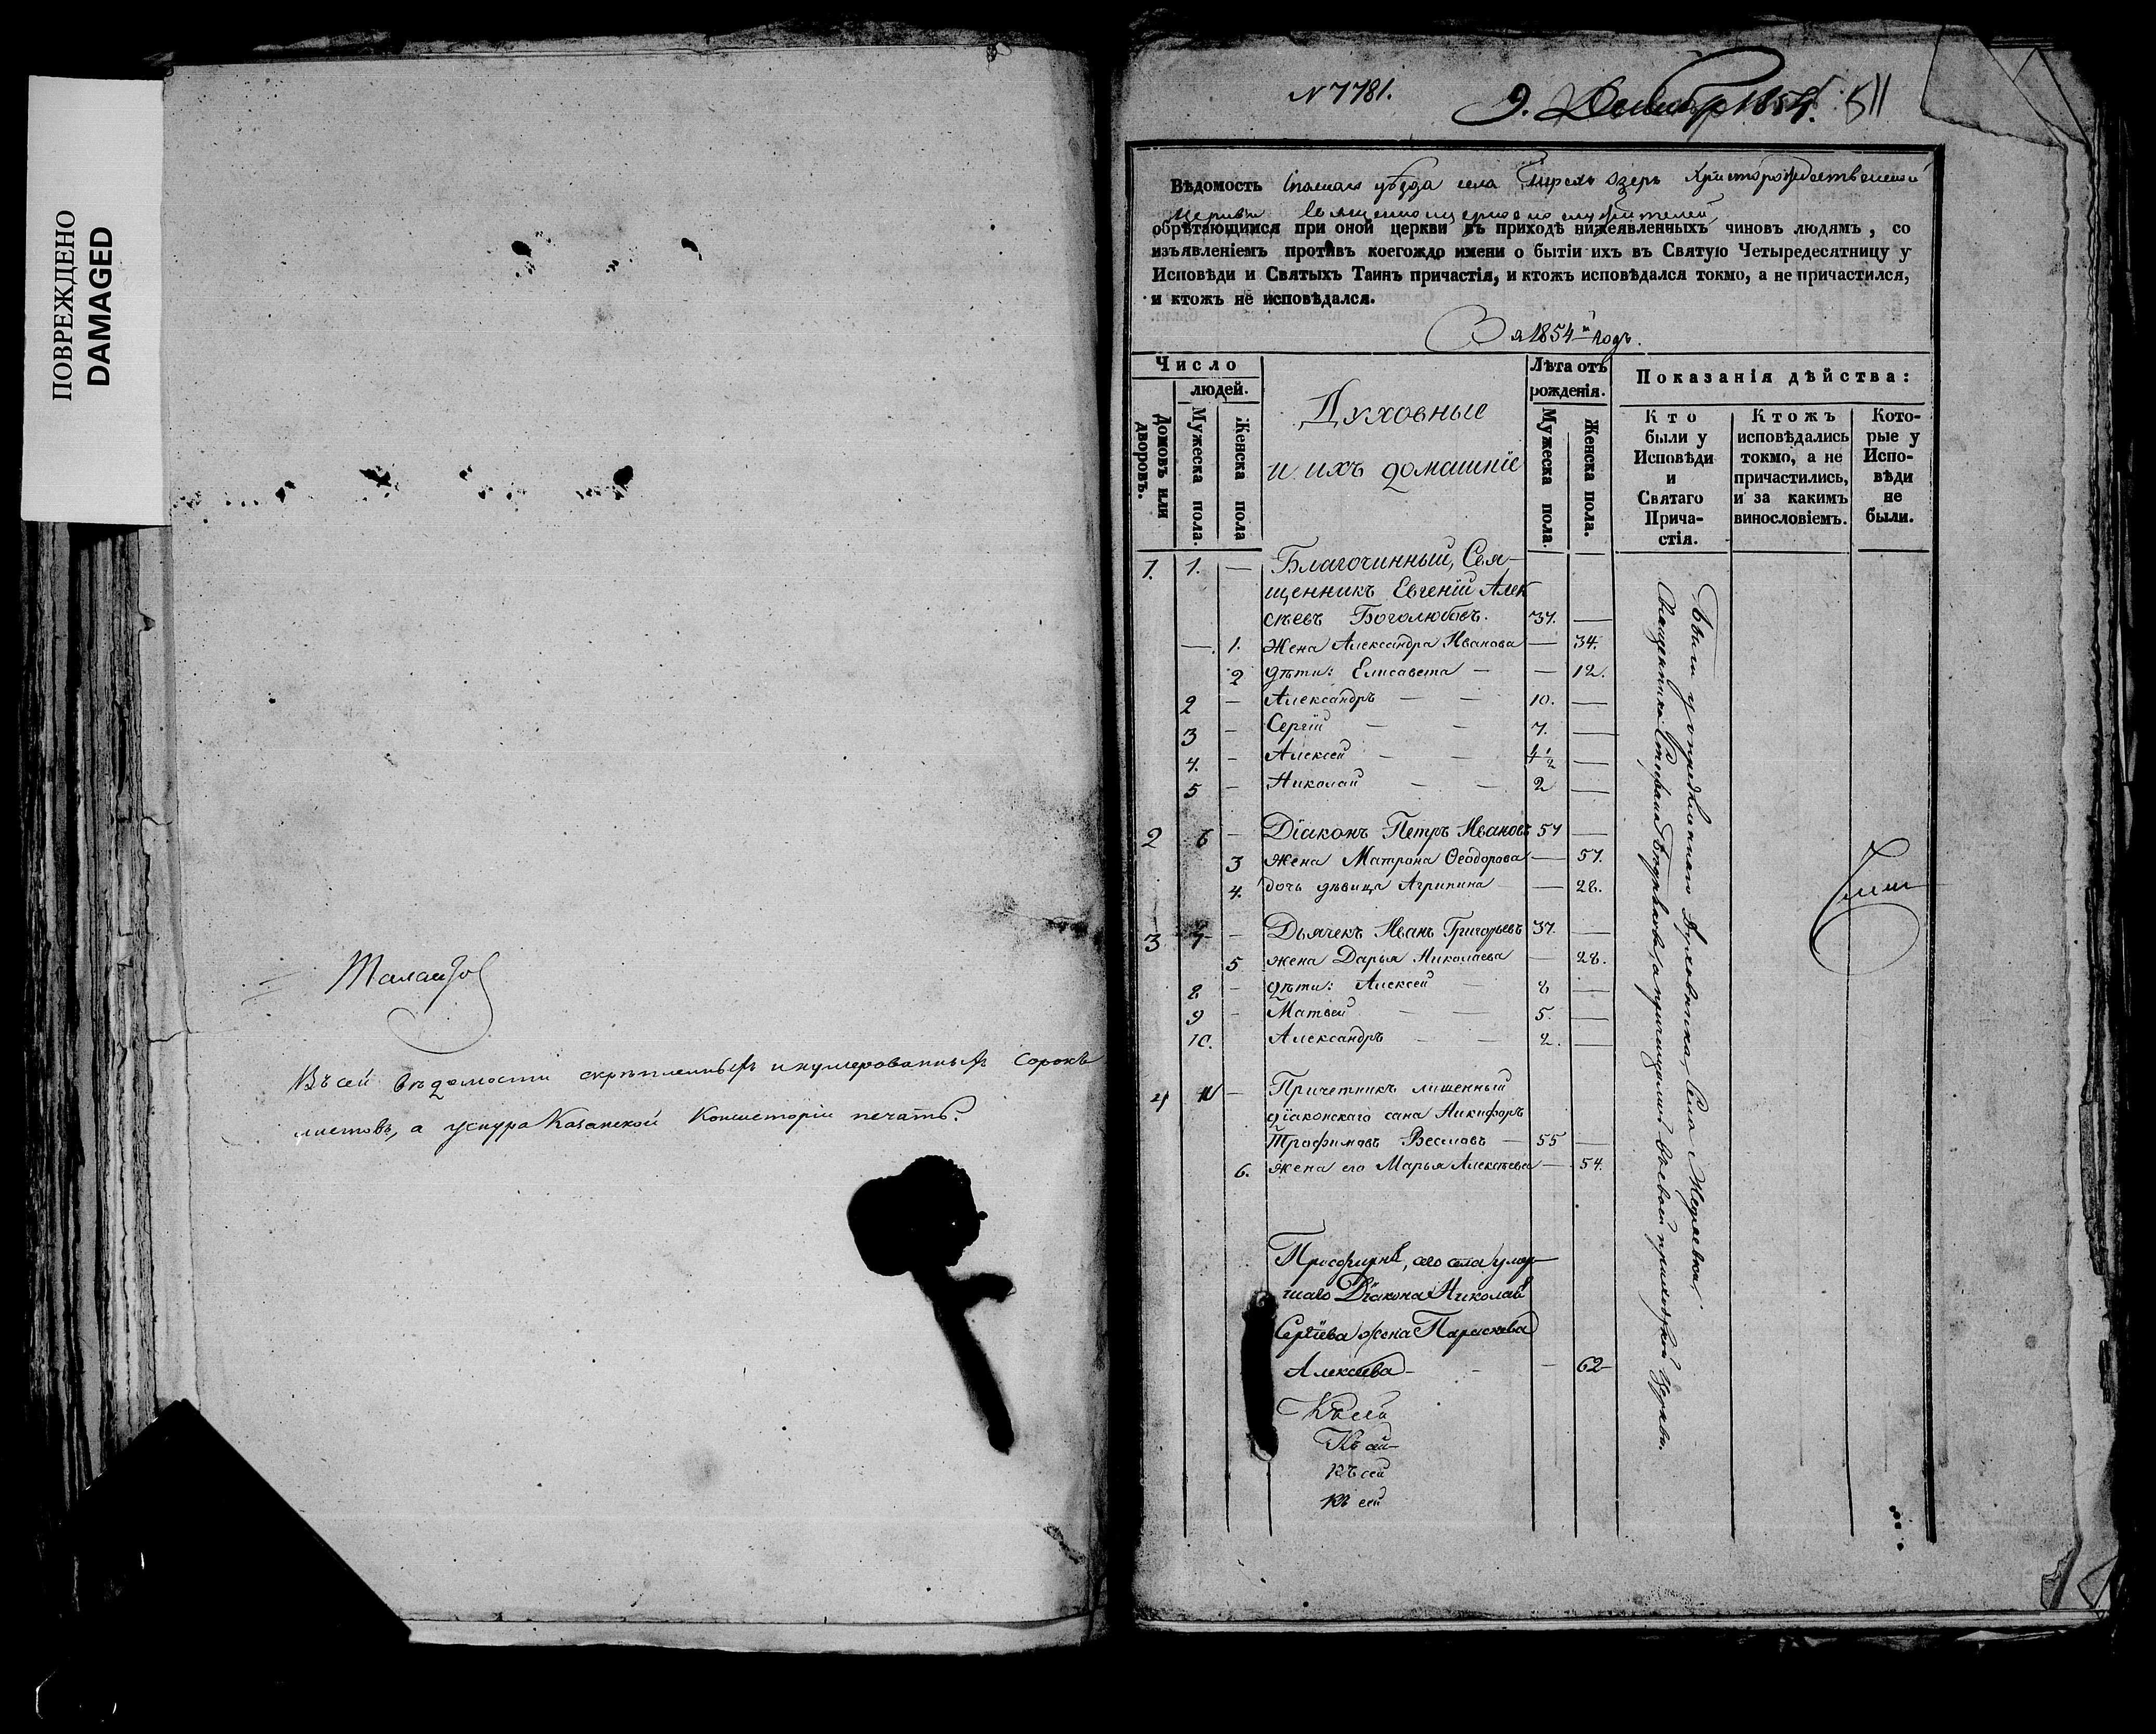 ПОВРЕЖДЕНО
DAMAGED
Въ сей ведомости скрепленныхъ и нумерованныхъ сорокъ
листовъ, а у снура Казанской Консисторіи печать.
N 7781.
9. Декабр 1854. 511
Вѣдомость Спаскаго уѣзда села озеръ Христорождественской
церкви
обрѣтающимся при оной церкви въ приходѣ нижеявленныхъ чиновъ людямъ, со
изъявленіемъ противъ коегождо имени о бытіи ихъ въ Святую Четыредесятницу у
Исповѣди и Святыхъ Таинъ причастія, и ктожъ исповѣдался токмо, а не причастился,
и ктожъ не исповѣдался.
За 1854 й годъ.
Число
людей.
Домовъ или дворовъ.
Мужеска пола.
Женска пола
Духовные
и ихъ домашніе
Лѣта отъ
рожденія.
Мужеска пола.
Женска пола.
Показанія дѣйства:
Кто
были у
Исповѣди
и
Святаго
Прича-
стія.
Ктожъ
исповѣдались
токмо, а не
причастились,
и за какимъ
винословіемъ.
Кото-
рые у
Испо-
вѣди
не
были.
1. 1. — Благочинный, Свя-
щенникъ Евгеній Алек
сѣевъ Боголюбовъ. 37. —
— 1. Жена Александра Иванова — 34.
2 дѣти: Елисавета — — 12.
2 — Александръ — — 10. —
3 — Сергій — — 7. —
4. — Алексей — — 4 1/2 —
5 — Николай — — 2 —
2 6 — Діаконъ Петръ Ивановъ 57 —
3 жена Матрона Ѳеодорова — 57.
4. дочь дѣвица Агрипина — 28.
3 7 — Дьячекъ Иванъ Григорьевъ 37. —
5 жена Дарья Николаева — 28.
8 — дѣти: Алексей — 8 —
9 — Матвей — — 5. —
10. Александръ — — 2. —
4 11 — Причетникъ лишенный
діаконскаго сана Никифоръ
Трофимовъ — 55 —
6. жена его Марья Алексѣева — 54.
Просфирня, сего села умер-
шаго Діакона Николая
Сергіева жена Параскева
Алексеева — — 62
Къ сей
Къ сей
къ сей
къ сей
Были у опредѣленнаго Духовника, села
Священника Стефана а причащались въ своей приходской церкви.